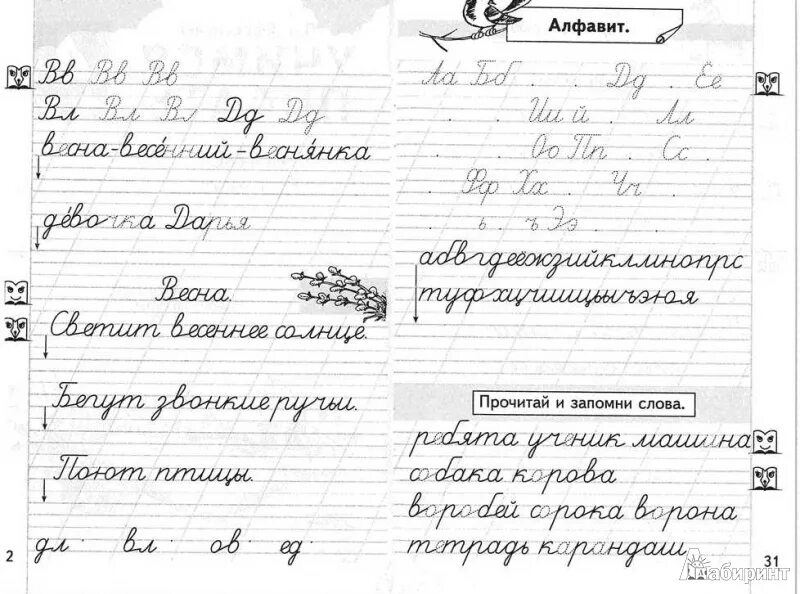 Вв Вв Вв
Вл Вл Вл Дд Дд
весна-весе́нний-весня́нка
де́вочка Дарья
Весна.
Светит весеннее солнце.
Бегут звонкие ручьи.
Поют птицы.
дл вл ов ед
2
Алфавит.
Аа Бб . . . Дд . Ее
. . . Ии й . Лл
. . Оо Пп . Сс .
. Фф Хх . Чч .
. ь . ъ Ээ . .
абвгдеёжзийклмнопрс
туфхцчшщьыъэюя
Прочитай и запомни слова.
ребята ученик машина
собака корова
воробей сорока ворона
тетрадь карандаш
31
Лабиринт